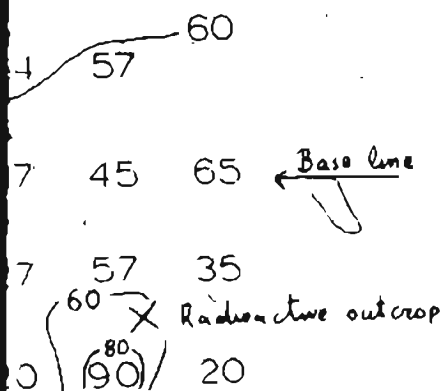 60
57
7 45 65 Base line
7 57 35
60 X Radioactive outcrop
80
0 90 20